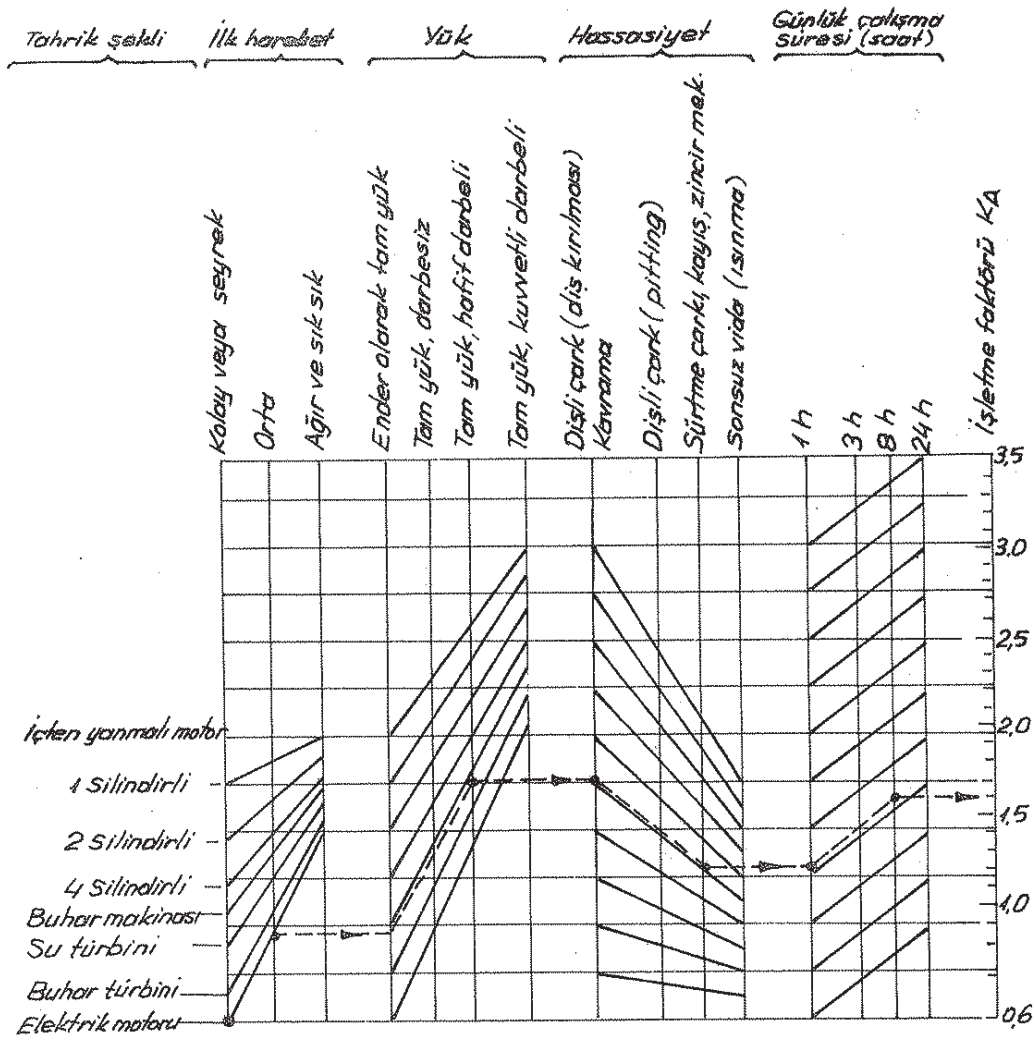 Tahrik şekli
İlk hareket
Yük
Hassasiyet
Günlük çalışma
süresi (saat)
Kolay veya seyrek
Orta
Ağır ve sık sık
Ender olarak tam yük
Tam yük, darbesiz
Tam yük, hafif darbeli
Tam yük, kuvvetli darbeli
Dişli çark (diş kırılması)
Kavrama
Dişli çark (pitting)
Sürtme çarkı, kayış, zincir mek.
Sonsuz vida (ısınma)
1 h
3 h
8 h
24 h
İşletme faktörü KA
3,5
3,0
2,5
2,0
1,5
1,0
0,6
İçten yanmalı motor
1 Silindirli
2 Silindirli
4 Silindirli
Buhar makinası
Su türbini
Buhar türbini
Elektrik motoru